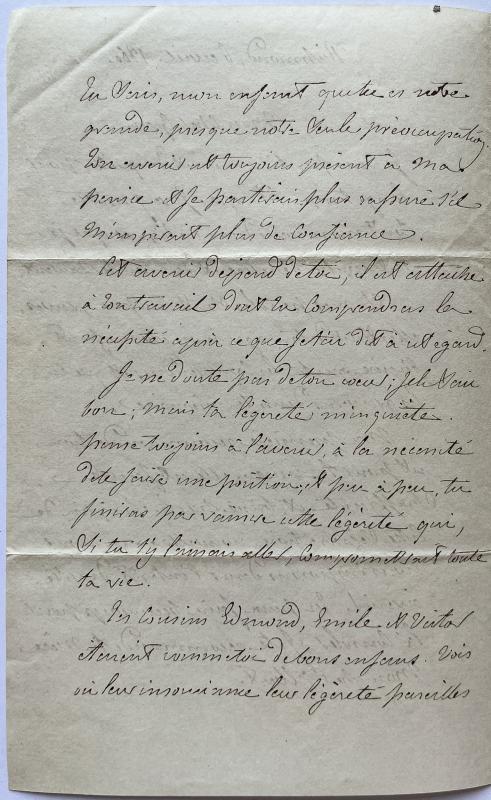 Tu sais, mon enfant que tu es notre
grande, presque notre seule préoccupation.
Ton avenir est toujours présent à ma
pensée et je partirais plus rassuré s'il
m'inspirait plus de confiance.
Cet avenir dépend de toi, il est attaché
à ton travail dont tu comprendras la
nécessité après ce que je t'ai dit à cet égard.
Je ne doute pas de ton cœur, je le sais
bon; mais ta légèreté m'inquiète.
pense toujours à l'avenir, à la nécessité
de te faire une position, et peu à peu, tu
finiras par vaincre cette légèreté qui,
si tu t'y laissais aller, compromettrait toute
ta vie.
Tes cousins Edmond, Emile et Victor
étaient comme toi de bons enfans. Vois
où leur insouciance leur légèreté pareilles